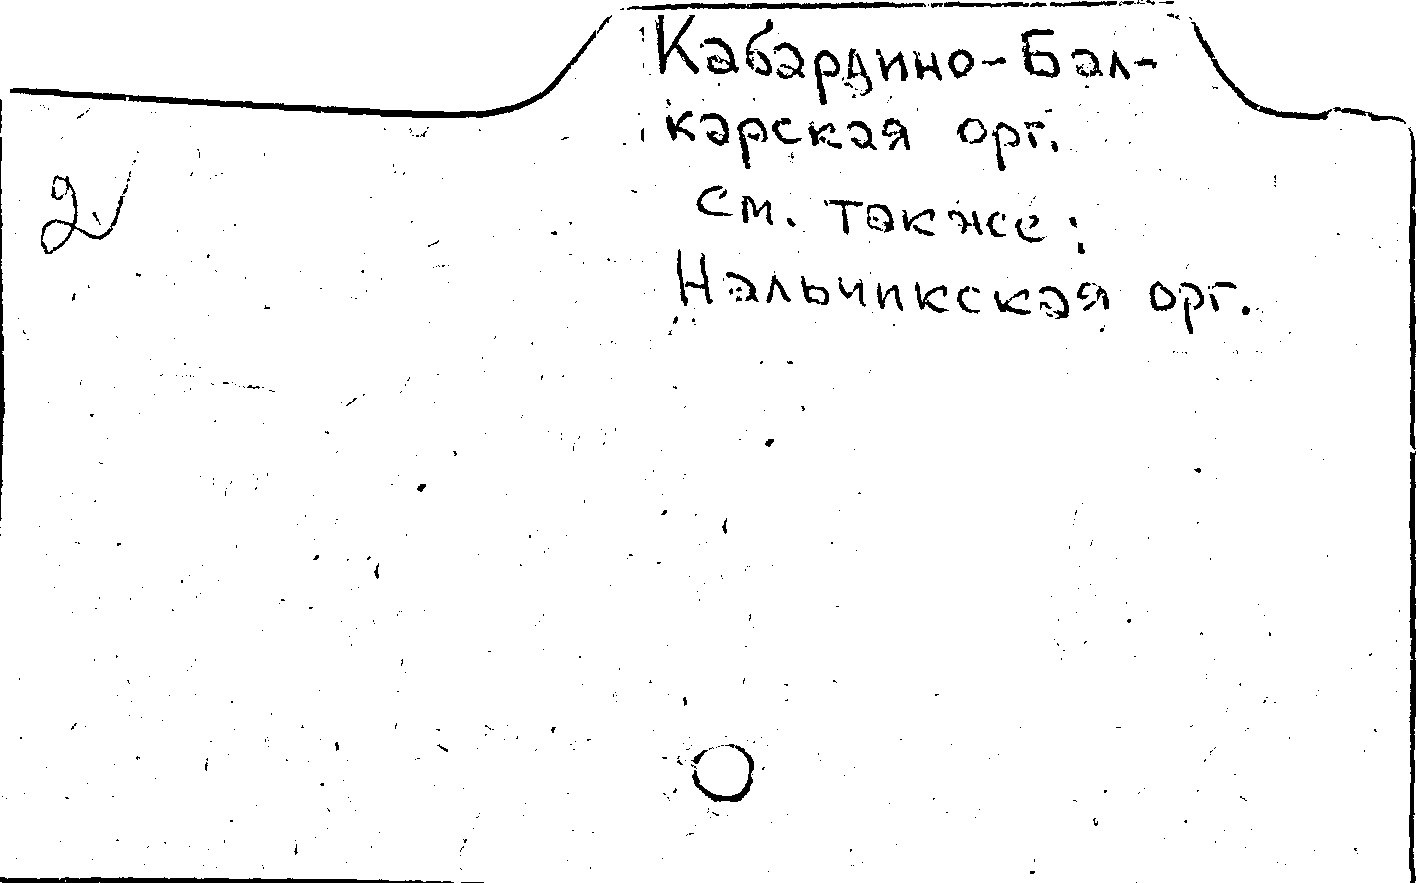 Кабардино-Бал-
карская орг.
см. также:
Нальчикская орг.
2